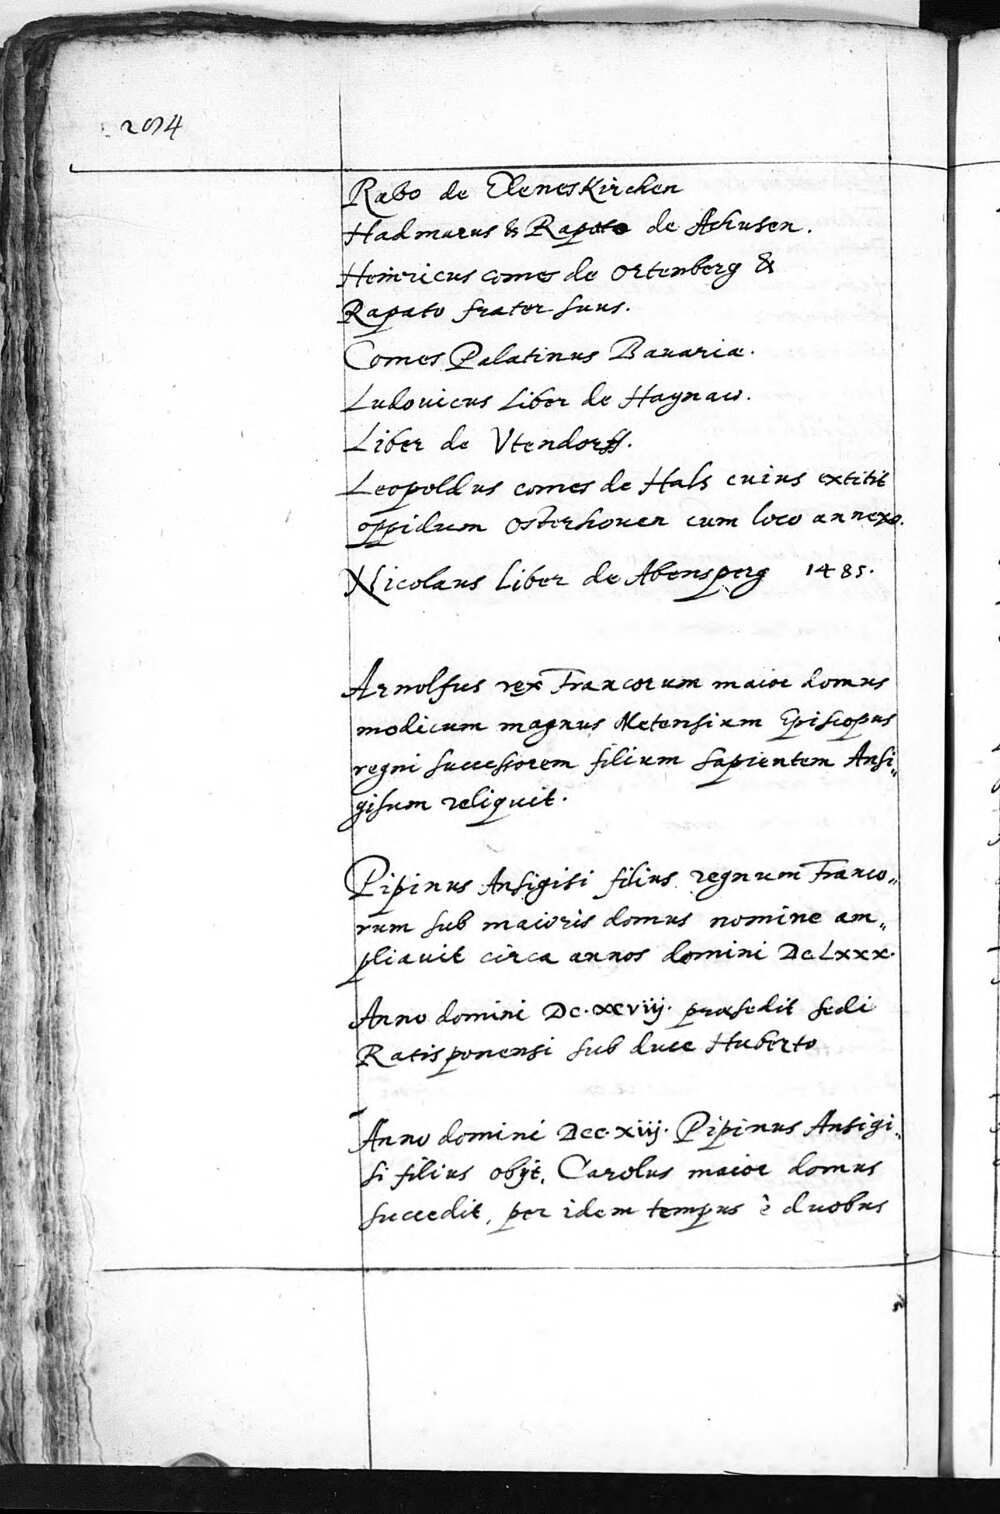 Rabo de Eleneskirchen
Hadmarus & Rapoto de Ahusen.
Heinricus comes de Ortenberg &
Rapato frater suus.
Comes Palatinus Bauariæ.
Ludouicus Liber de Haynaw.
Liber de Vtendorff.
Leopoldus comes de Hals cuius extitit
oppidum Osterhouen cum loco annexo.
Nicolaus Liber de Abensperg 1485.
Arnolfus rex Francorum maior domus
modicum magnus Metensium Episcopus
regni successorem filium sapientem Ansi„
gisum reliquit.
Pipinus Ansigisi filius regnum Franco„
rum sub maioris domus nomine am„
pliauit circa annos domini DcLxxx.
Anno domini Dc.xcviij. præsedit sedi
Ratisponensi sub duce Huberto
Anno domini Dcc.xiij. Pipinus Ansigi„
si filius obijt, Carolus maior domus
succedit, per idem tempus è duobus